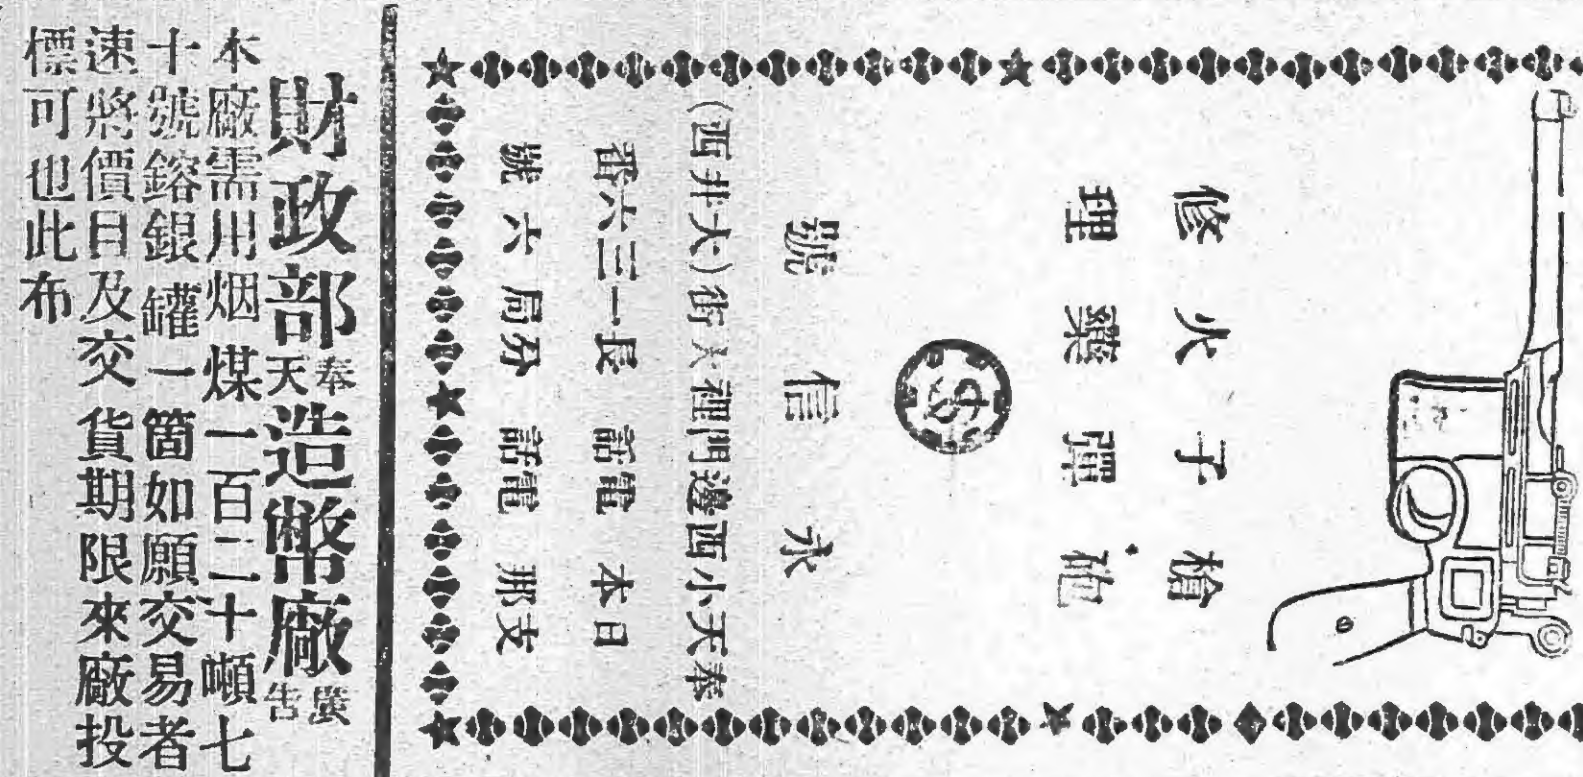 槍砲
子彈
火藥
修理
永信號
奉天小西邊門裡大街(大井西)
日本電話 長一三六番
支那電話 分局六號
財政部奉天造幣廠廣告
本廠需用烟煤一百二十噸七
十號鎔銀罐一箇如願交易者
速將價日及交貨期限來廠投
標可也此布